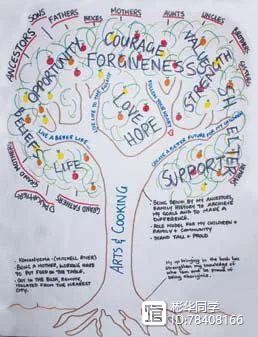 ANCESTORS
SONS
FATHERS
NIECES
MOTHERS
AUNTS
UNCLES
BROTHERS
SISTERS
OPPORTUNITY
COURAGE
FORGIVENESS
VALUES
STRENGTH
SHELTER
BELIEFS
LIVE LIFE TO THE FULLEST
LOVE
HOPE
LIVE A BETTER LIFE
CREATE A BETTER FUTURE FOR MY CHILDREN
LIFE
SUPPORT
GRAND MOTHERS
DAUGHTERS
GRAND FATHERS
ARTS & COOKING
- BEING BY MY ANCESTORS,
FAMILY HISTORY TO ACHIEVE
MY GOALS AND TO MAKE A
DIFFERENCE.
- ROLE MODEL FOR MY CHILDREN
FAMILY & COMMUNITY
- STAND TALL & PROUD
- (MITCHELL RIVER)
BEING A MOTHER, WORKING HARD
TO PUT FEED ON THE TABLE.
- OUT IN THE BUSH, REMOTE,
ISOLATED FROM THE NEAREST
CITY.
My up bringing in the bush has
strengthen my knowledge of
who I am and be proud of
being Aboriginal.
彬华同学
ID:78408166